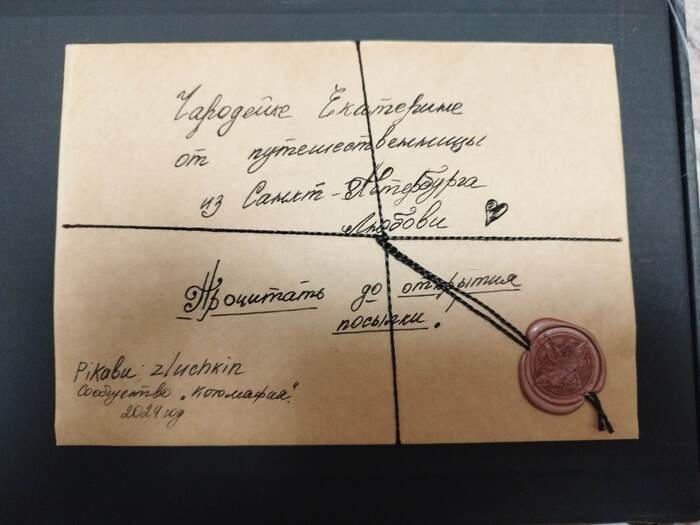 Чародейке Екатерине
от путешественницы
из Санкт-Петербурга
Любови
Прочитать до открытия
посылки.
Pikabu: zluchkin
Сообщество „Котомафия".
2024 год